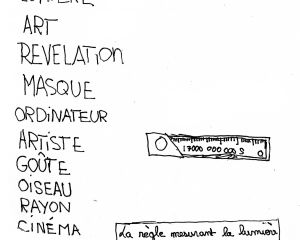 ART
REVELATION
MASQUE
ORDINATEUR
ARTISTE
GOÛTE
OISEAU
RAYON
CINÉMA
17000 000 000 S
La règle mesurant la lumière